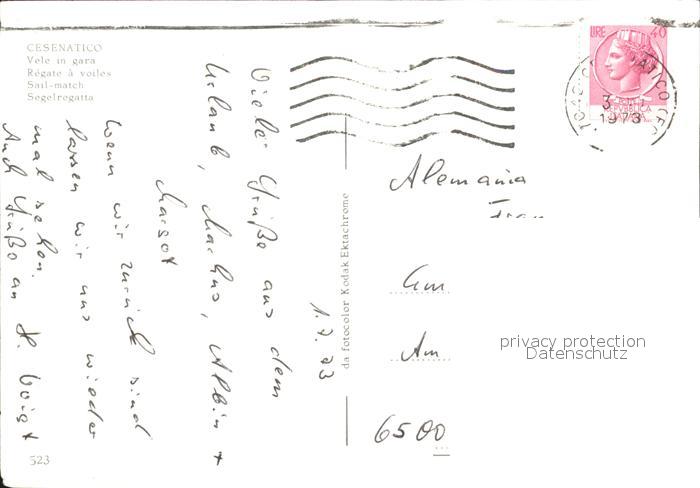 CESENATICO
Vele in gara
Régate à voiles
Sail-match
Segelregatta
LIRE 40
1973
1.7.73
Viele Grüße aus dem
Urlaub, Markus, Albin +
Margot
Wenn wir zurück sind
lassen wir uns wieder
mal sehen.
Auch Grüße an H. Voigt
da fotocolor Kodak Ektachrome
Alemania
Am
6500
privacy protection
Datenschutz
523